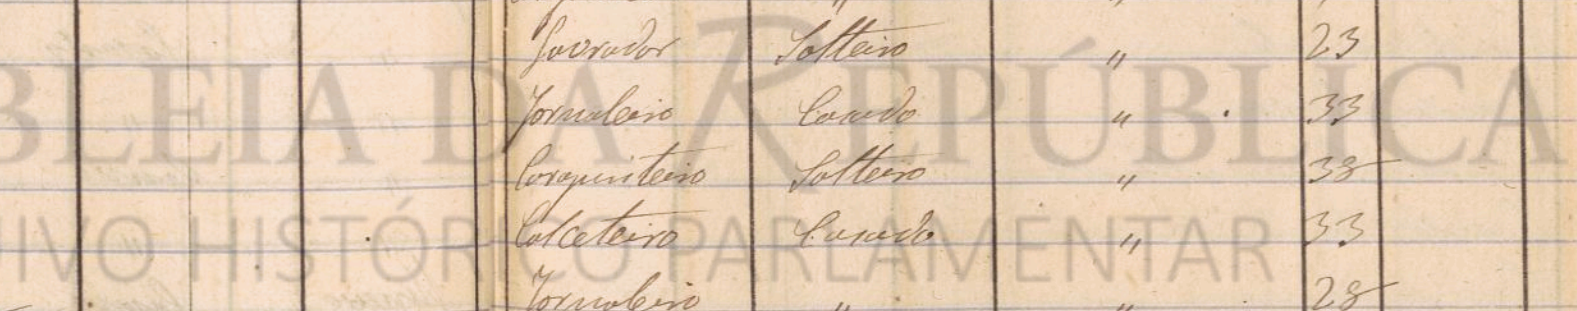 Lavrador Solteiro " 23
Jornaleiro Casado " 33
Carapinteiro Solteiro " 38
Calceteiro Casado " 33
Jornaleiro " " 28
BLEIA DA REPÚBLICA
HIVO HISTÓRICO PARLAMENTAR